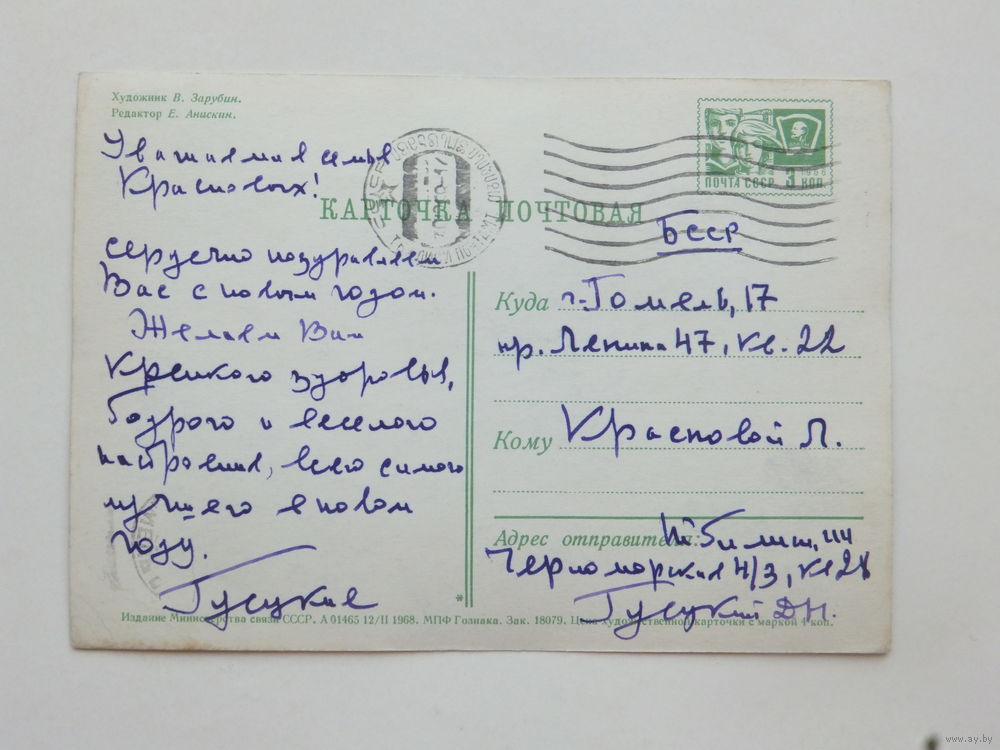 Художник В. Зарубин.
Редактор Е. Анискин.
Уважаемая семья
Красновых!
сердечно поздравляем
Вас с новым годом.
Желаем Вам
крепкого здоровья,
бодрого и веселого
настроения, всего самого
лучшего в новом
году.
Гусуцкие
КАРТОЧКА ПОЧТОВАЯ
ПОЧТА СССР 3 КОП
1966
БССР
Куда г. Гомель, 17
пр. Ленина 47, кв. 22
Кому Красновой Л.
Адрес отправителя: Тбилиси, 114
Черноморская 4/3, кв 28
Гусуцкий Д Н.
Издание Министерства связи СССР. А 01465 12/II 1968. МПФ Гознака. Зак. 18079. Цена художественной карточки с маркой 4 коп.
www.ay.by